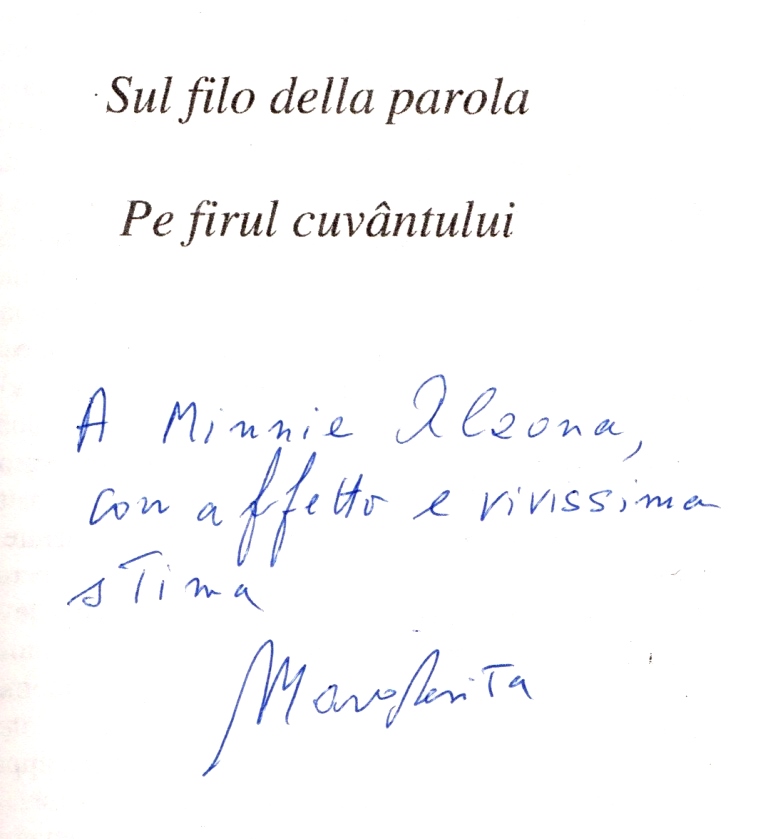 Sul filo della parola
Pe firul cuvântului
A Minnie Alzona,
con affetto e vivissima
stima
Margherita